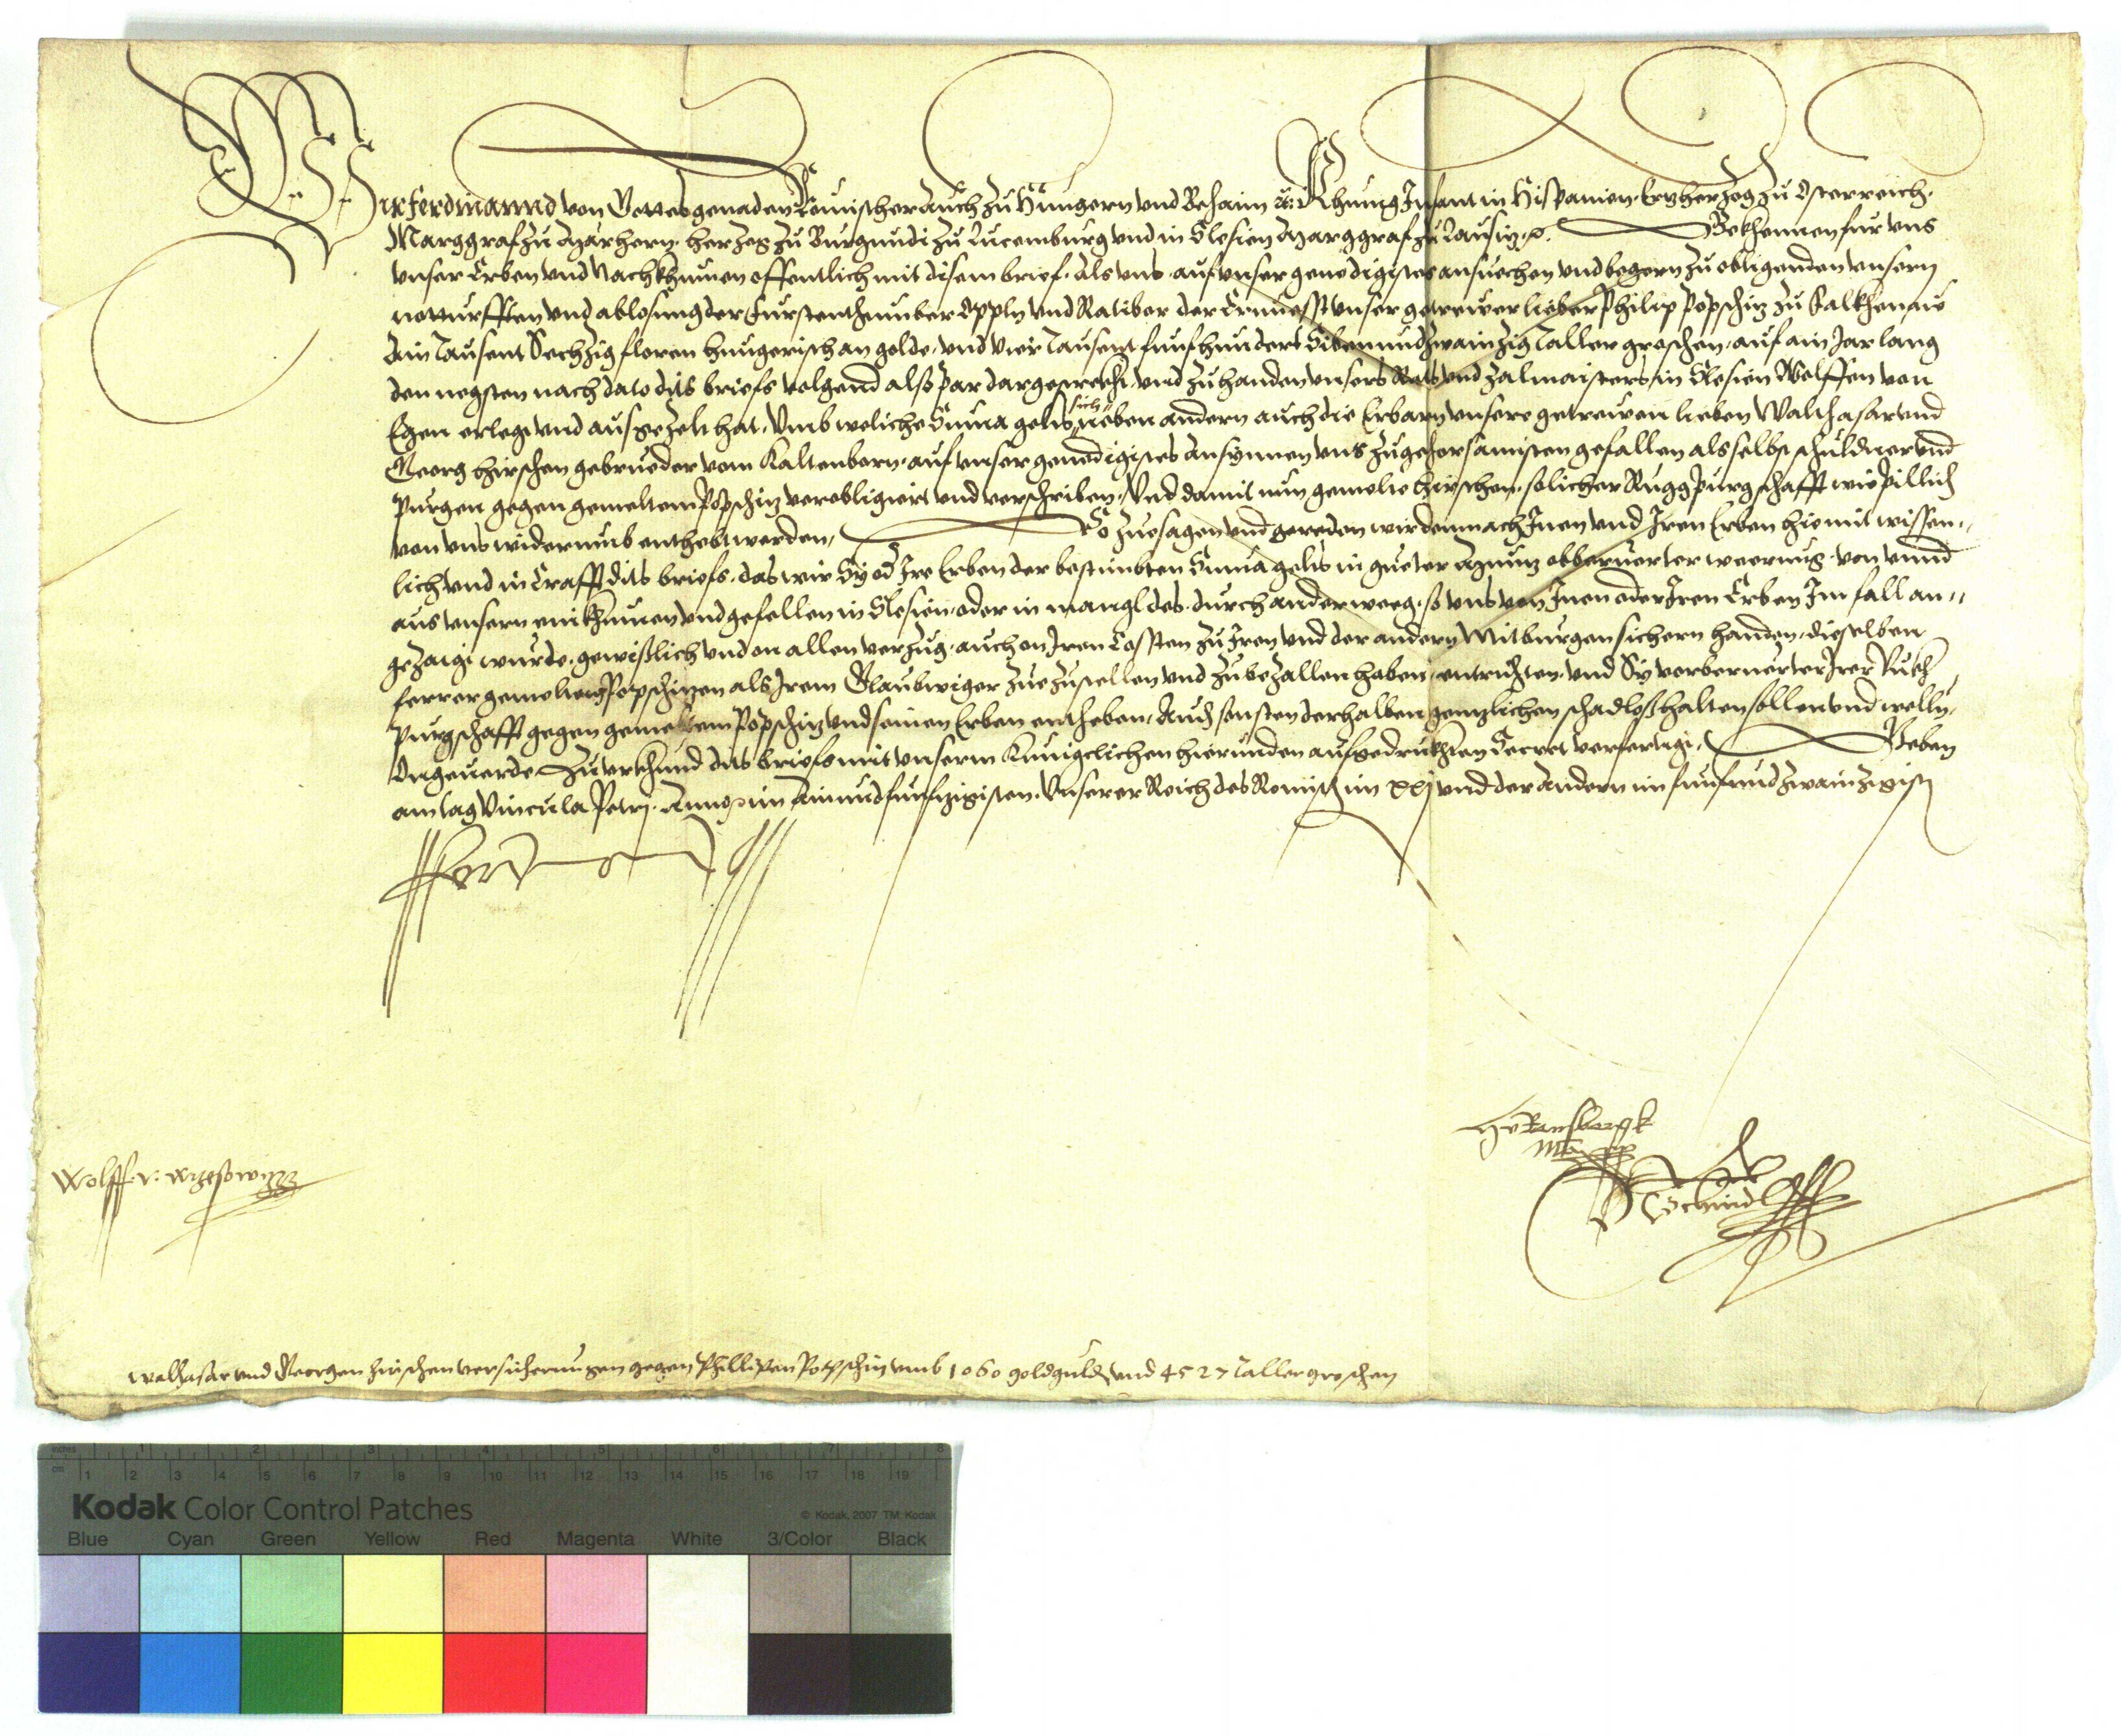 Wir Ferdinannd von Gottes genaden Römischer auch zu Hungern und Behaim etc. Khunig Infant in Hispanien, Ertzherzog zu Österreich,
Marggraf zu Märhern, herzog zu Burgundi zu Lucemburg und in Slesien Marggraf zu Lausitz etc. Bekhennen für uns
unser Erben und Nachkhumen offentlich mit disem brief, als uns auf unser genedigistes ansuechen und begern zu obligenden unsern
notturfften und ablosung der Furstenthumber Oppln und Ratibor der Ernuesst unser getreuer lieber Philip Popschitz zu Falkhenaw
Ain Tausent Sechzig floren hungerisch an golde, und vier Tausent funfhundert Sibenundzwainzig Taller groschen, auf ain Jar lang
den negsten nach dato dits briefs volgend also par dargestreckht, und zu handen unsers Rats und Zalmaisters in Slesien Wolffen von
Egen erlegt und ausgezelt hat, Umb weliche Suma gelts sich neben andern auch die Erbarn unsere getrewen lieben Walthasar und
Georg Hirschen gebrueder vom Kaltenborn, auf unser genedigistes Ansynnen uns zu gehorsamisten gefallen als selbst schuldner und
purgen gegen gemeltem Popschitz verobligiert und verschriben, Und damit nun gemelte Hirschen, solicher Rugg Purgschafft wie pillich
von uns widerumb enthebt werden, So zuesagen und gereden wir demnach Inen und Iren Erben hiemit wissen„
lich und in Crafft dits briefs, das wir Sy od Ire Erben der bestimbten Suma gelts in gueter Muntz obberuerter weerung, von unnd
aus unsern einkhumen und gefellen in Slesien, oder in mangl des, durch ander weeg, so uns von Inen oder Iren Erben Im fall an„
gezaigt wurde, gewißlich und on allen verzug, auch on Iren Cossten zu Iren und der andern Mitburgen sichern handen, dieselben
ferrer gemeltem Popschitzen als Irem Glaubwiger zuezustellen und zubezallen haben, entrichten, und Sy vorberuerter Irer Rukh
Purgschafft gegen gemeltem Popschitz und seinen Erben entheben, Auch sonsten derhalben genntzlichen schadloß halten sollen und wellen,
Ongeuerde, Zu urkhund dits briefs mit unserm Kunigclichen hierunden aufgedrukhten Secret verfertigt, Geben
am tag Vincula Petrj, Anno etc. im Ainundfunfzigisten, Unserer Reich des Römisch im xxj und der Andern im funfundzwainzigisten
Ferdinand
Wolff v. Wrzesowitz
Schindl
Walthasar und Georgen Hirschen versicherungen gegen Phillipen Popschitz umb 1060 goldguldn und 4527 Taller groschen
inches 1 2 3 4 5 6 7 8
cm 1 2 3 4 5 6 7 8 9 10 11 12 13 14 15 16 17 18 19
Kodak Color Control Patches © Kodak, 2007 TM: Kodak
Blue Cyan Green Yellow Red Magenta White 3/Color Black